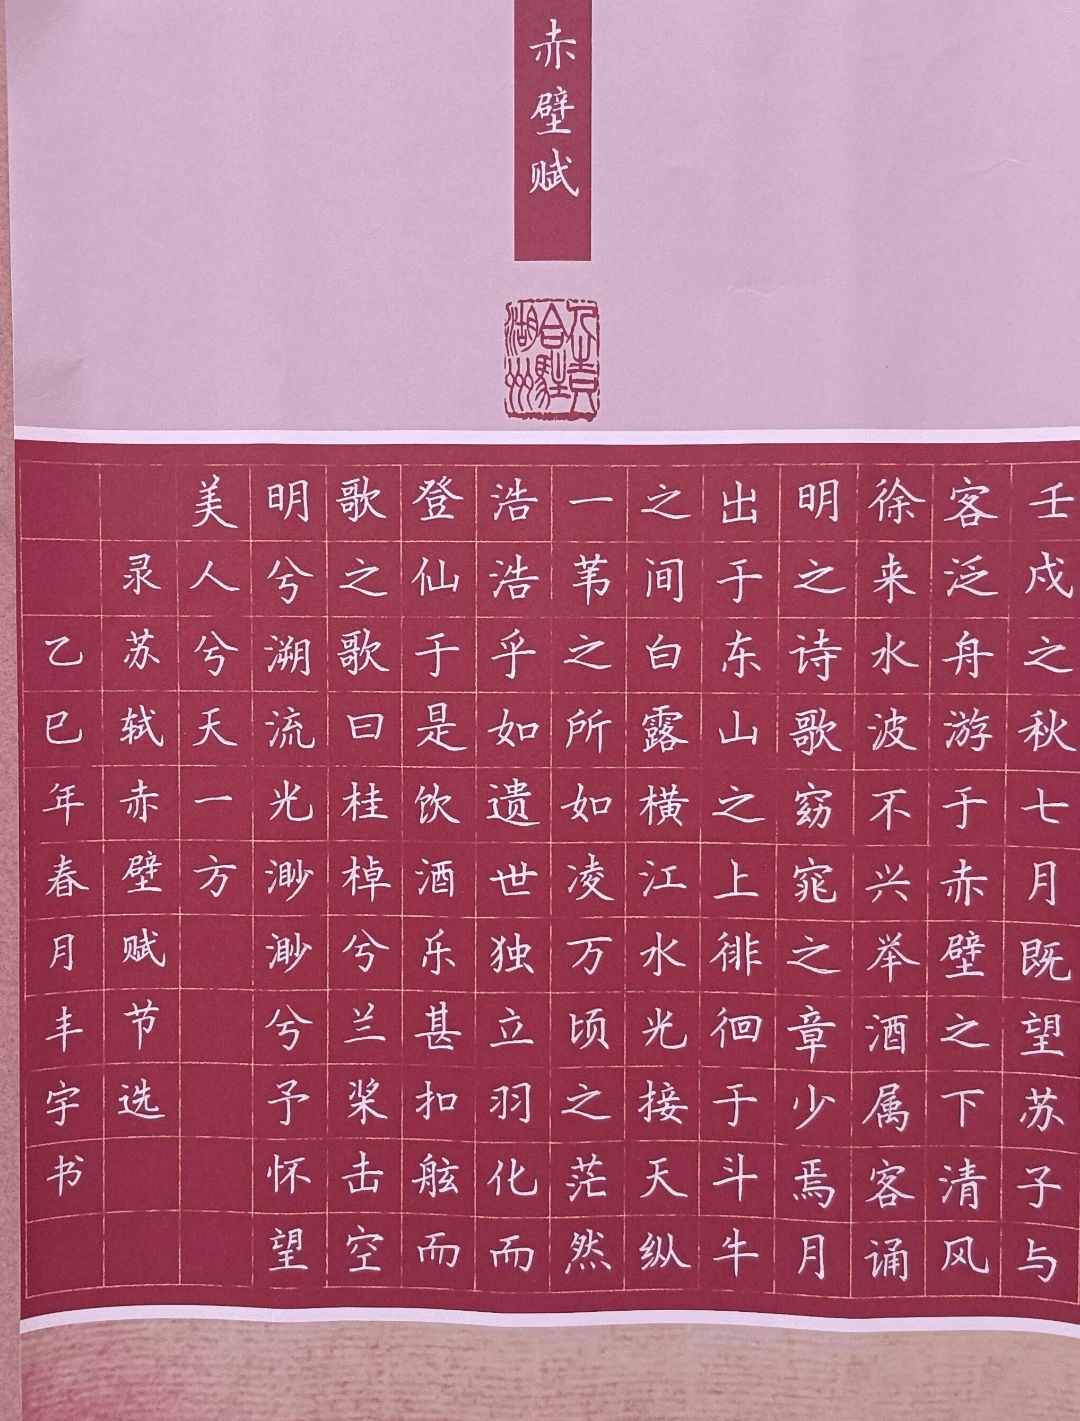 赤壁赋
湖州
壬戌之秋七月既望苏子与
客泛舟游于赤壁之下清风
徐来水波不兴举酒属客诵
明之诗歌窈窕之章少焉月
出于东山之上徘徊于斗牛
之间白露横江水光接天纵
一苇之所如凌万顷之茫然
浩浩乎如遗世独立羽化而
登仙于是饮酒乐甚扣舷而
歌之歌曰桂棹兮兰桨击空
明兮溯流光渺渺兮予怀望
美人兮天一方
录苏轼赤壁赋节选
乙巳年春月丰宇书